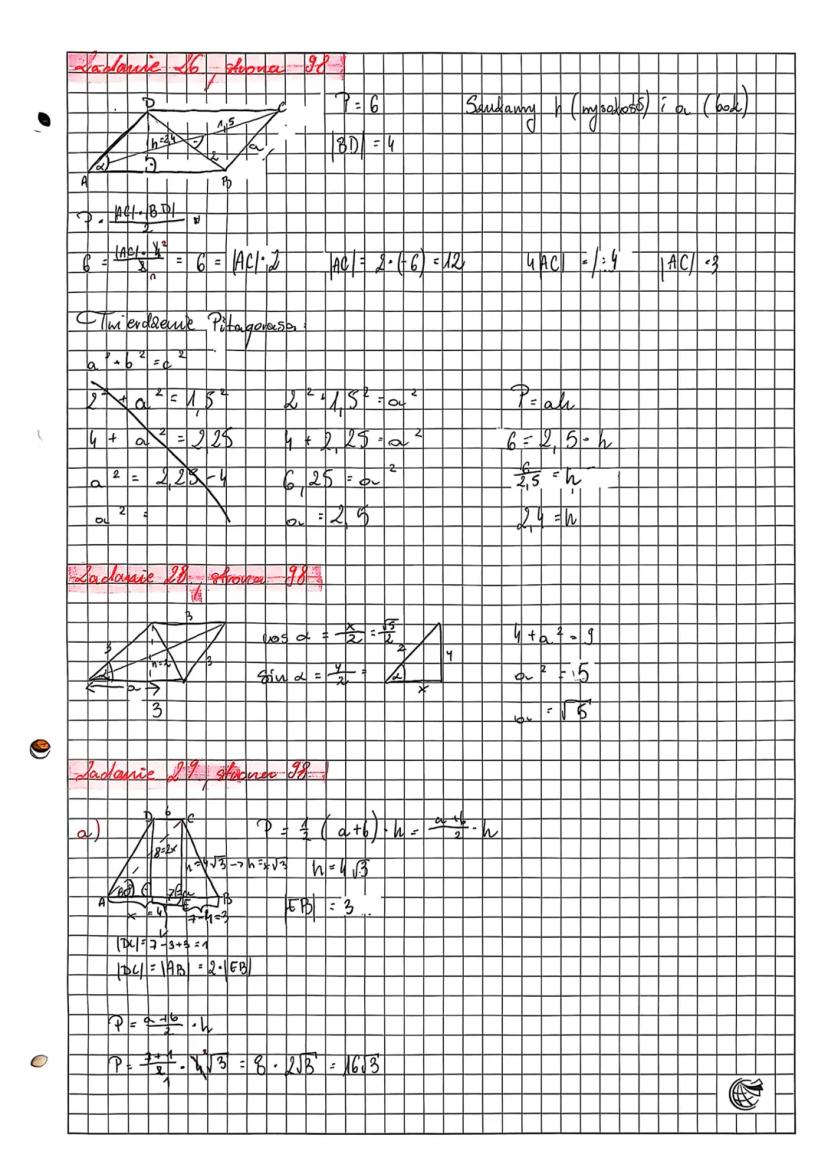 Zadanie 26, strona 98
D C
1,5
h=2,4
2 a
α
A B
P = 6 Szukamy h (wysokość) i a (bok)
|BD| = 4
P = |AC|·|BD| / 2
6 = |AC|·4 / 2 = 6 = |AC|·2 |AC| = 2·(-6) = 12 4|AC| = /:4 |AC| = 3
Twierdzenie Pitagorasa:
a² + b² = c²
2² + a² = 1,5² 2² + 1,5² = a² P = ah
4 + a² = 2,25 4 + 2,25 = a² 6 = 2,5 · h
a² = 2,25 - 4 6,25 = a² 6/2,5 = h
a² = a = 2,5 2,4 = h
Zadanie 28, strona 98
3
3 h=2 3
α
a
3
cos α = x/2 = √5/2
sin α = y/2 =
2 y
α
x
4 + a² = 9
a² = 5
a = √5
Zadanie 29, strona 98
a)
D b C
8=2x
h=4√3 → h=x√3
60°
A E B
x = 4 7-4=3
P = 1/2 (a+b) · h = a+b/2 · h
h = 4√3
|EB| = 3
|DC| = 7-3+3 = 1
|DC| = |AB| = 2·|EB|
P = a+b/2 · h
P = 7+1/2 · 4√3 = 8 · 2√3 = 16√3